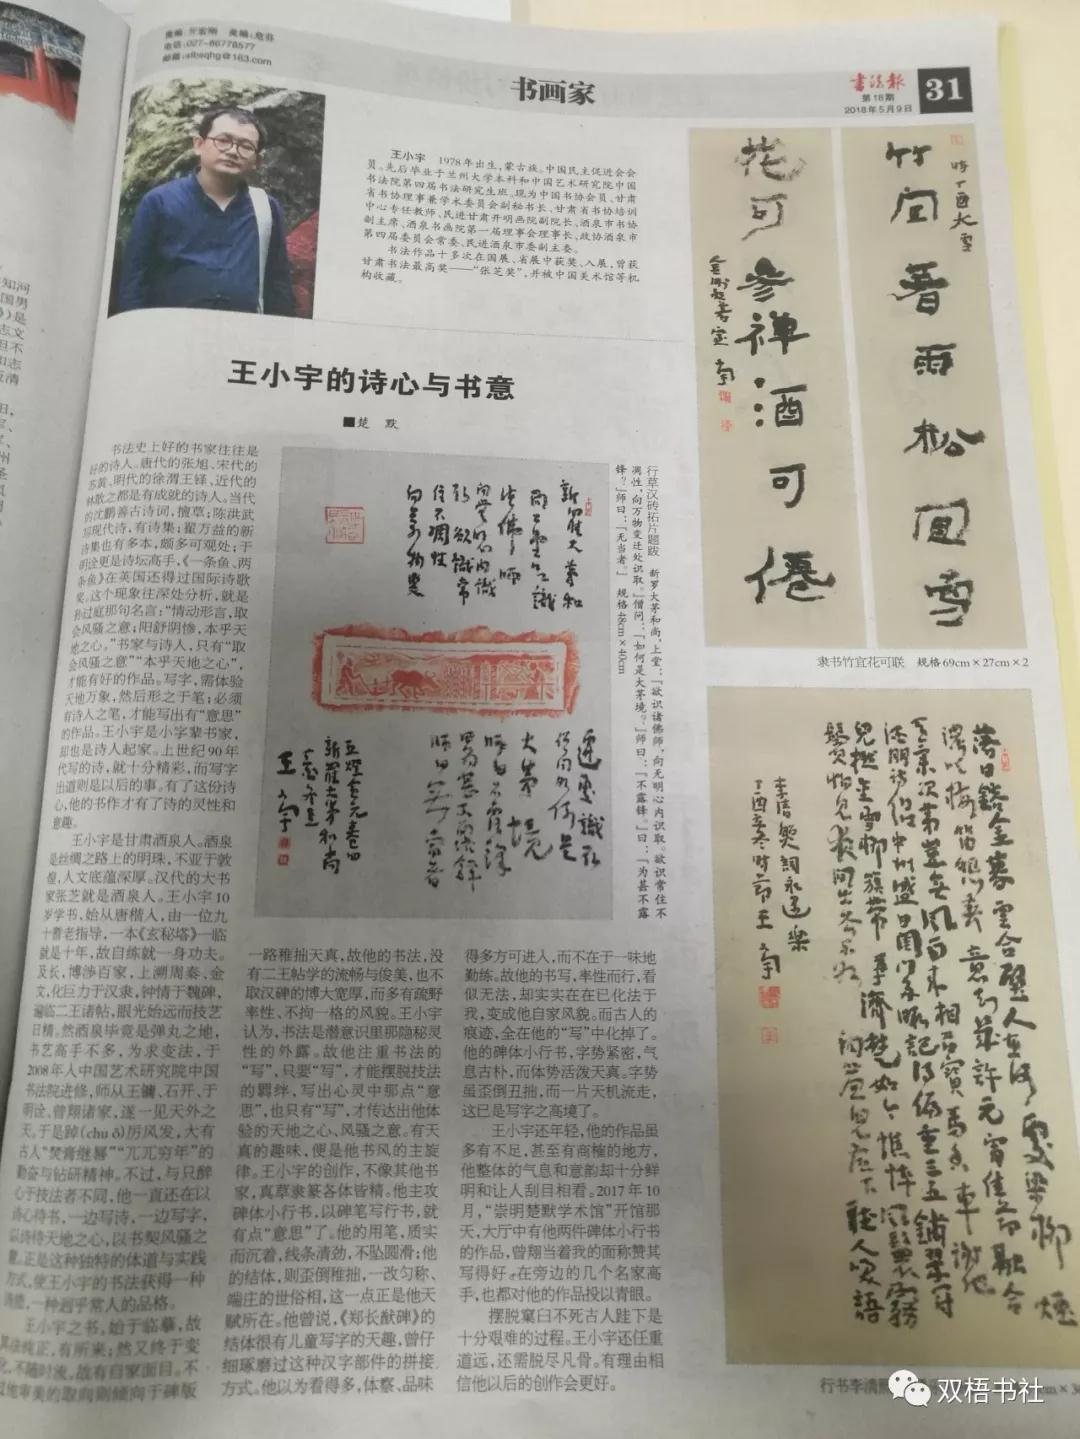 责编:亓宏刚 美编:危芬
电话:027-86778577
邮箱:sfbsqhg@163.com
书画家
书法报
第18期
2018年5月9日
31
王小宇 1978年出生,蒙古族。中国民主促进会会
员。先后毕业于兰州大学本科和中国艺术研究院中国
书法院第四届书法研究生班。现为中国书协会员、甘肃
省书协理事兼学术委员会副秘书长、甘肃省书协培训
中心专任教师、民进甘肃开明画院副院长、酒泉市书协
副主席、酒泉书画院第一届理事会理事长、政协酒泉市
第四届委员会常委、民进酒泉市委副主委。
书法作品十多次在国展、省展中获奖、入展,曾获
甘肃书法最高奖——“张芝奖”,并被中国美术馆等机
构收藏。
王小宇的诗心与书意
■楚 默
书法史上好的书家往往是
好的诗人。唐代的张旭、宋代的
苏黄、明代的徐渭王铎,近代的
林散之都是有成就的诗人。当代
的沈鹏善古诗词,擅草;陈洪武
写现代诗,有诗集;翟万益的新
诗集也有多本,颇多可观处;于
明诠更是诗坛高手,《一条鱼、两
条鱼》在英国还得过国际诗歌
奖。这个现象往深处分析,就是
孙过庭那句名言:“情动形言,取
会风骚之意;阳舒阴惨,本乎天
地之心。”书家与诗人,只有“取
会风骚之意”“本乎天地之心”,
才能有好的作品。写字,需体验
天地万象,然后形之于笔;必须
有诗人之笔,才能写出有“意思”
的作品。王小宇是小字辈书家,
却也是诗人起家。上世纪90年
代写的诗,就十分精彩,而写字
出道则是以后的事。有了这份诗
心,他的书作才有了诗的灵性和
意趣。
王小宇是甘肃酒泉人。酒泉
是丝绸之路上的明珠,不亚于敦
煌,人文底蕴深厚。汉代的大书
家张芝就是酒泉人。王小宇10
岁学书,始从唐楷入,由一位九
十耆老指导,一本《玄秘塔》一临
就是十年,故自练就一身功夫。
及长,博涉百家,上溯周秦、金
文,化巨力于汉隶,钟情于魏碑,
遍临二王诸帖,眼光始远而技艺
日精。然酒泉毕竟是弹丸之地,
书艺高手不多,为求变法,于
2008年入中国艺术研究院中国
书法院进修,师从王镛、石开、于
明诠、曾翔诸家,遂一见天外之
天。于是踔(chuō)厉风发,大有
古人“焚膏继晷”“兀兀穷年”的
勤奋与钻研精神。不过,与只醉
心于技法者不同,他一直还在以
诗心待书,一边写诗,一边写字,
以诗待天地之心,以书契风骚之
意。正是这种独特的体道与实践
方式,使王小宇的书法获得一种
诗意,一种迥乎常人的品格。
王小宇之书,始于临摹,故
其径纯正,有所来;然又终于变
化,不随时流,故有自家面目。不
过他审美的取向则倾向于碑版
一路稚拙天真,故他的书法,没
有二王帖学的流畅与俊美,也不
取汉碑的博大宽厚,而多有疏野
率性、不拘一格的风貌。王小宇
认为,书法是潜意识里那隐秘灵
性的外露。故他注重书法的
“写”,只要“写”,才能摆脱技法
的羁绊,写出心灵中那点“意
思”,也只有“写”,才传达出他体
验的天地之心、风骚之意。有天
真的趣味,便是他书风的主旋
律。王小宇的创作,不像其他书
家,真草隶篆各体皆精。他主攻
碑体小行书,以碑笔写行书,就
有点“意思”了。他的用笔,质实
而沉着,线条清劲,不坠圆滑;他
的结体,则歪倒稚拙,一改匀称、
端庄的世俗相,这一点正是他天
赋所在。他曾说,《郑长猷碑》的
结体很有儿童写字的天趣,曾仔
细琢磨过这种汉字部件的拼接
方式。他以为看得多,体察、品味
得多方可进入,而不在于一味地
勤练。故他的书写,率性而行,看
似无法,却实实在在已化法于
我,变成他自家风貌。而古人的
痕迹,全在他的“写”中化掉了。
他的碑体小行书,字势紧密,气
息古朴,而体势活泼天真。字势
虽歪倒丑拙,而一片天机流走,
这已是写字之高境了。
王小宇还年轻,他的作品虽
多有不足,甚至有商榷的地方,
他整体的气息和意韵却十分鲜
明和让人刮目相看。2017年10
月,“崇明楚默学术馆”开馆那
天,大厅中有他两件碑体小行书
的作品,曾翔当着我的面称赞其
写得好。在旁边的几个名家高
手,也都对他的作品投以青眼。
摆脱窠臼不死古人跬下是
十分艰难的过程。王小宇还任重
道远,还需脱尽凡骨。有理由相
信他以后的创作会更好。
行草汉砖拓片题跋 新罗大茅和尚,上堂:“欲识诸佛师,向无明心内识取。欲识常住不
凋性,向万物变迁处识取。”僧问:“如何是大茅境?”师曰:“不露锋。”曰:“为甚不露
锋?”师曰:“无当者。” 规格48cm×40cm
新罗大茅和
尚上堂欲识
诸佛师
向无明心内识
取欲识常
住不凋性
向万物变
迁处识取
僧问如何是
大茅境
师曰不露锋
曰为甚不露锋
师曰无当者
五灯会元卷四
新罗大茅和尚
王小宇
竹宜著雨松宜雪
时丁酉大雪
花可参禅酒可倦
隶书竹宜花可联 规格69cm×27cm×2
落日镕金暮云合璧人在何处染柳烟
浓吹梅笛怨春意知几许元宵佳节融合
天气次第岂无风雨来相召宝马香车谢他
酒朋诗侣中州盛日闺门多暇记得偏重三五铺翠冠
儿撚金雪柳簇带争济楚如今憔悴风鬟雾
鬓怕见夜间出去不如向帘儿底下听人笑语
李清照词永遇乐
丁酉立冬时节王小宇
行书李清照
双梧书社